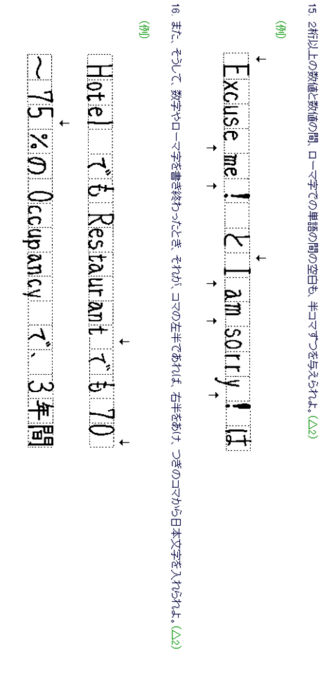 15. 2桁以上の数値と数値の間、ローマ字での単語の間の空白も、半コマずつを与えられよ。(△2)
(例)
Excuse me! と I am sorry! は
16. また、そうして、数字やローマ字を書き終わったとき、それが、コマの左半であれば、右半をあけ、つぎのコマから日本文字を入れられよ。(△2)
(例)
Hotel でも Restaurant でも 70
～75%の Occupancy で、3年間